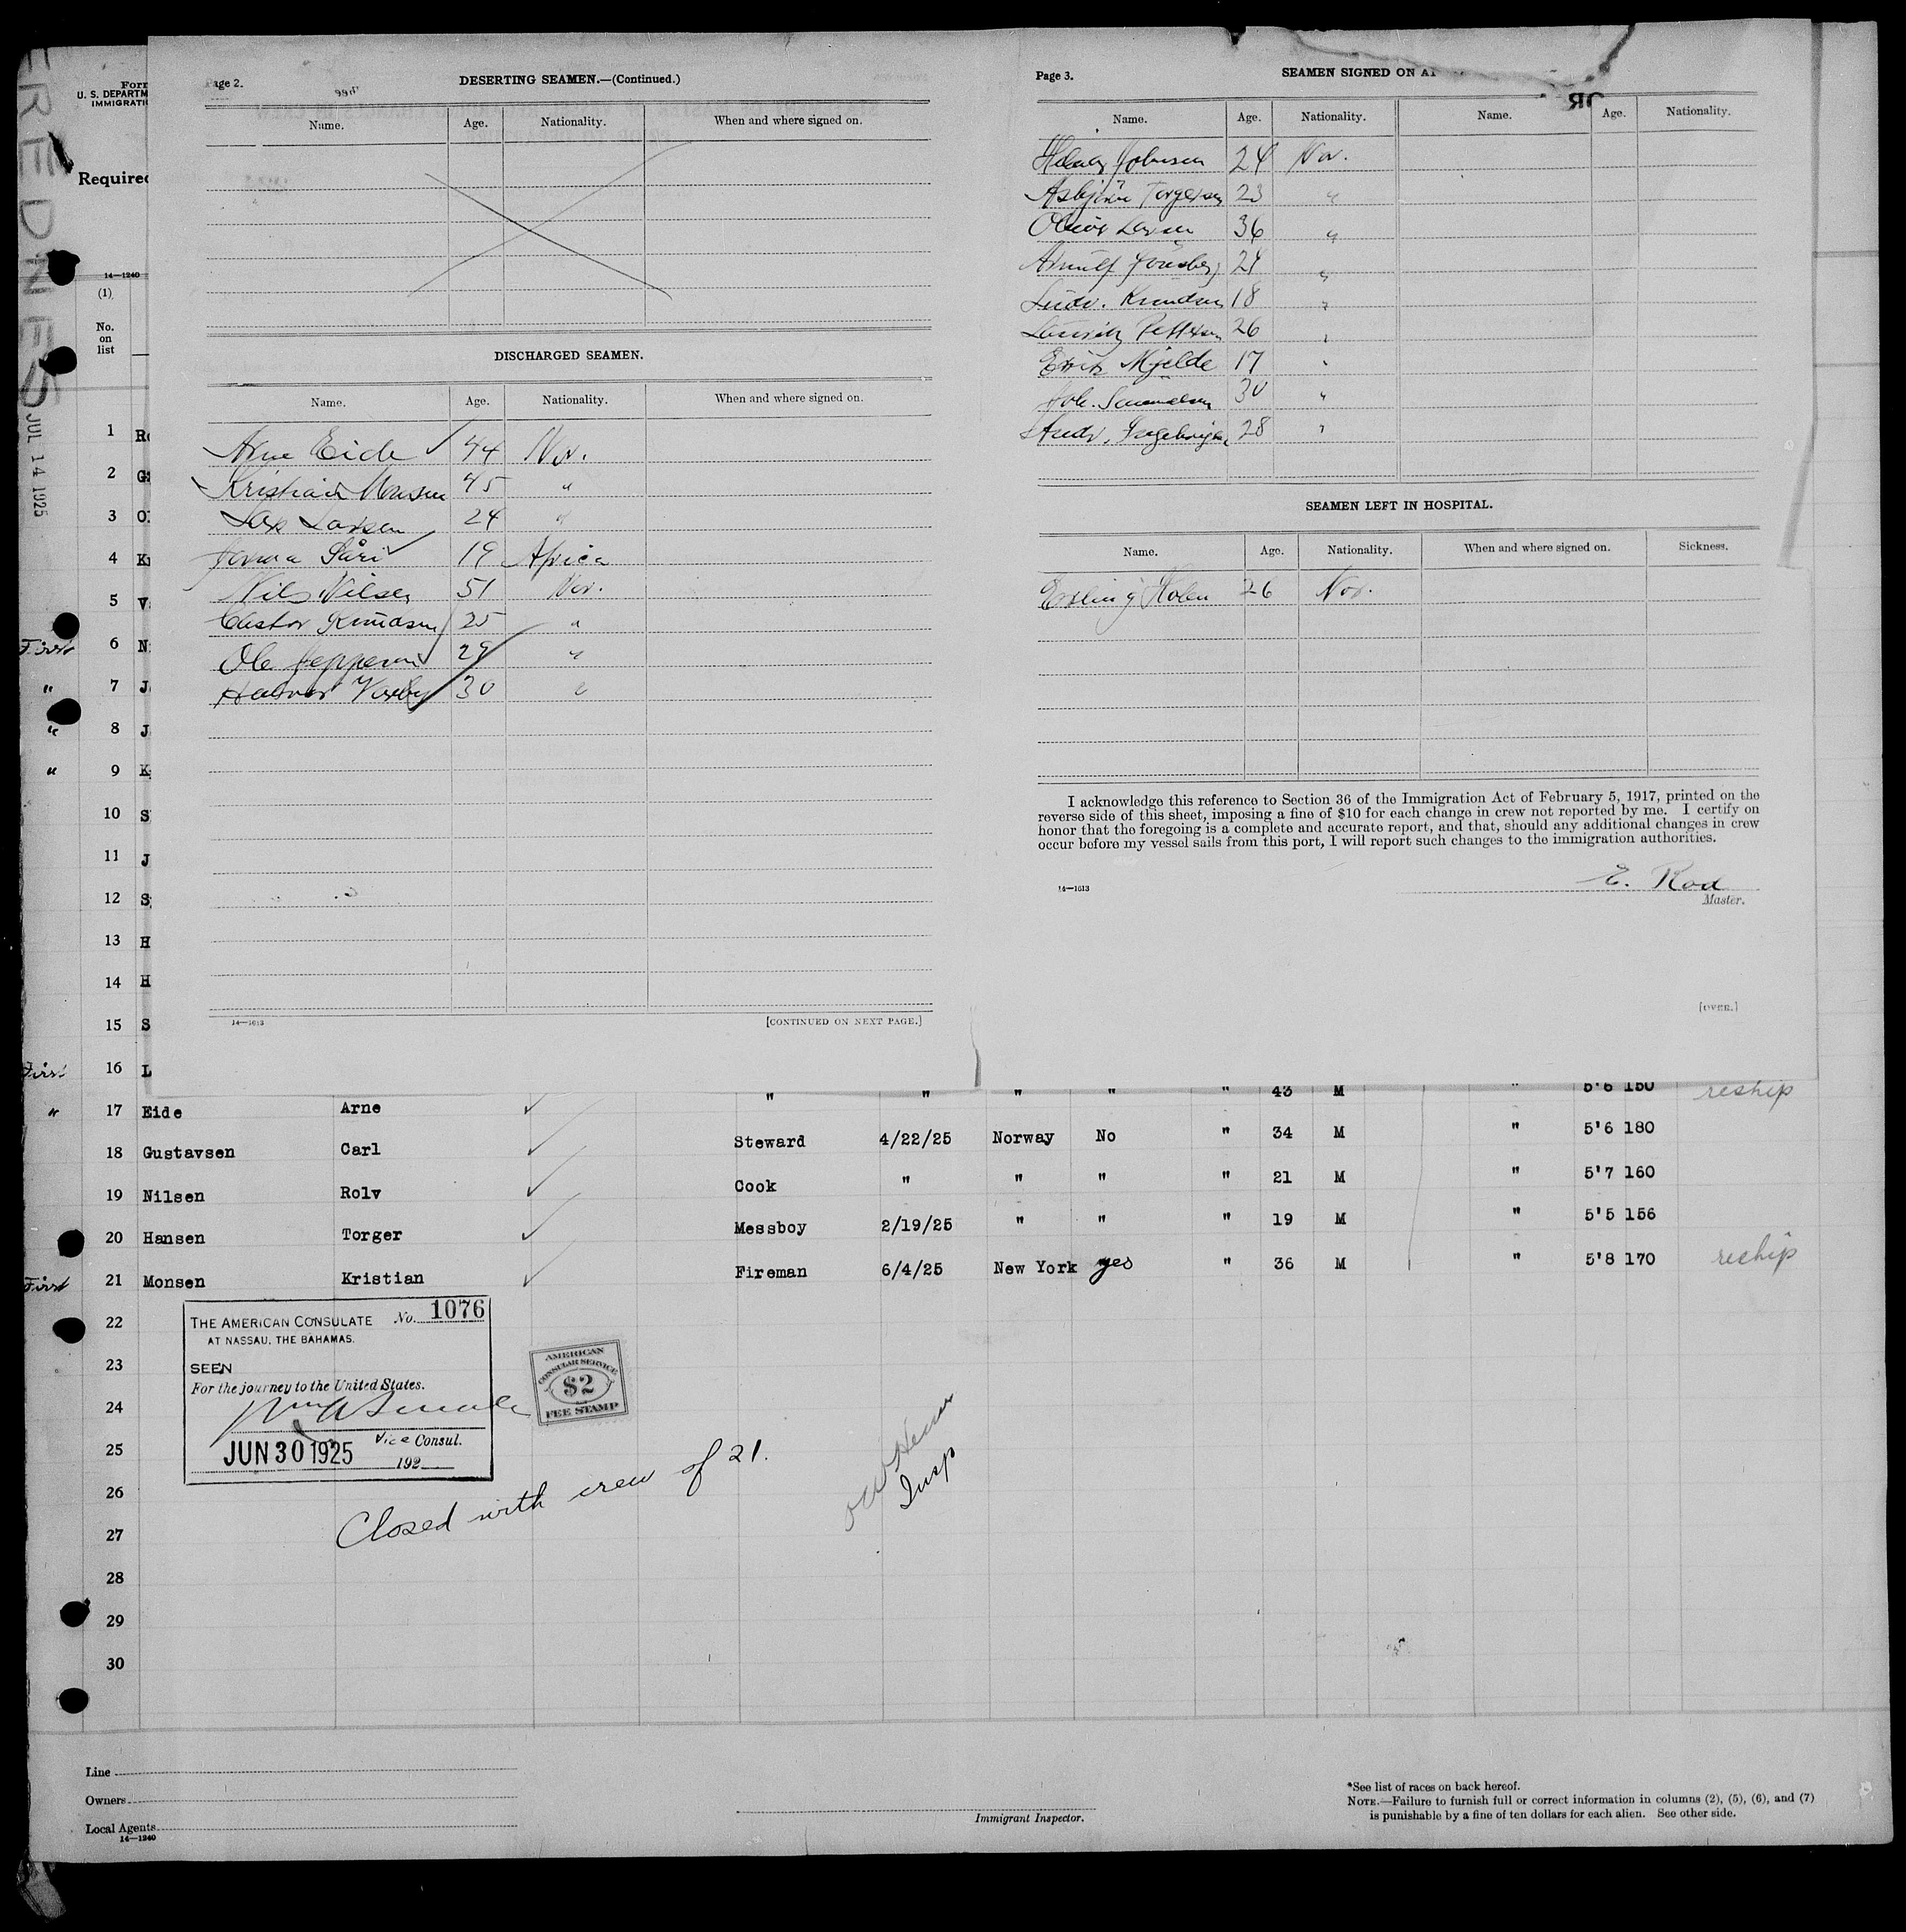 Page 2.
DESERTING SEAMEN.—(Continued.)
Name. Age. Nationality. When and where signed on.
DISCHARGED SEAMEN.
Name. Age. Nationality. When and where signed on.
Arne Eide 44 Nor.
Kristian Monsen 45 "
Lars Larsen 24 "
19 Africa
Nils Nilsen 51 Nor.
Castor Knudsen 25 "
Ole Jeppesen 29 "
30 "
14—1613
[CONTINUED ON NEXT PAGE.]
Page 3.
SEAMEN SIGNED ON AT
Name. Age. Nationality. Name. Age. Nationality.
Johnsen 24 Nor.
Asbjörn Torgersen 23 "
Larsen 36 "
Arnulf 24 "
Knudsen 18 "
Lauritz Pettersen 26 "
Erik Mjelde 17 "
30 "
Andr. 28 "
SEAMEN LEFT IN HOSPITAL.
Name. Age. Nationality. When and where signed on. Sickness.
Erling Holen 26 Nor.
I acknowledge this reference to Section 36 of the Immigration Act of February 5, 1917, printed on the
reverse side of this sheet, imposing a fine of $10 for each change in crew not reported by me. I certify on
honor that the foregoing is a complete and accurate report, and that, should any additional changes in crew
occur before my vessel sails from this port, I will report such changes to the immigration authorities.
14—1613
E. Rod
Master.
[OVER.]
Form
U. S. DEPARTM
IMMIGRATI
Required
14—1240
(1)
No.
on
list
JUL 14 1925
1 Ro
2
3
4
5 V
First 6 N
" 7 J
" 8 J
" 9 K
10 S
11 J
12 S
13 H
14 H
15 S
First 16 L
" 17 Eide Arne " " " " " 43 M " 5'6 150 reship
18 Gustavsen Carl Steward 4/22/25 Norway No " 34 M " 5'6 180
19 Nilsen Rolv Cook " " " " 21 M " 5'7 160
20 Hansen Torger Messboy 2/19/25 " " " 19 M " 5'5 156
First 21 Monsen Kristian Fireman 6/4/25 New York yes " 36 M " 5'8 170 reship
22
23
24
25
26
27
28
29
30
THE AMERICAN CONSULATE No. 1076
AT NASSAU, THE BAHAMAS.
SEEN
For the journey to the United States.
Vice Consul.
JUN 30 1925 192
AMERICAN
CONSULAR SERVICE
$2
FEE STAMP
Closed with crew of 21.
Insp
Line
Owners
Local Agents
14—1240
Immigrant Inspector.
*See list of races on back hereof.
NOTE.—Failure to furnish full or correct information in columns (2), (5), (6), and (7)
is punishable by a fine of ten dollars for each alien. See other side.